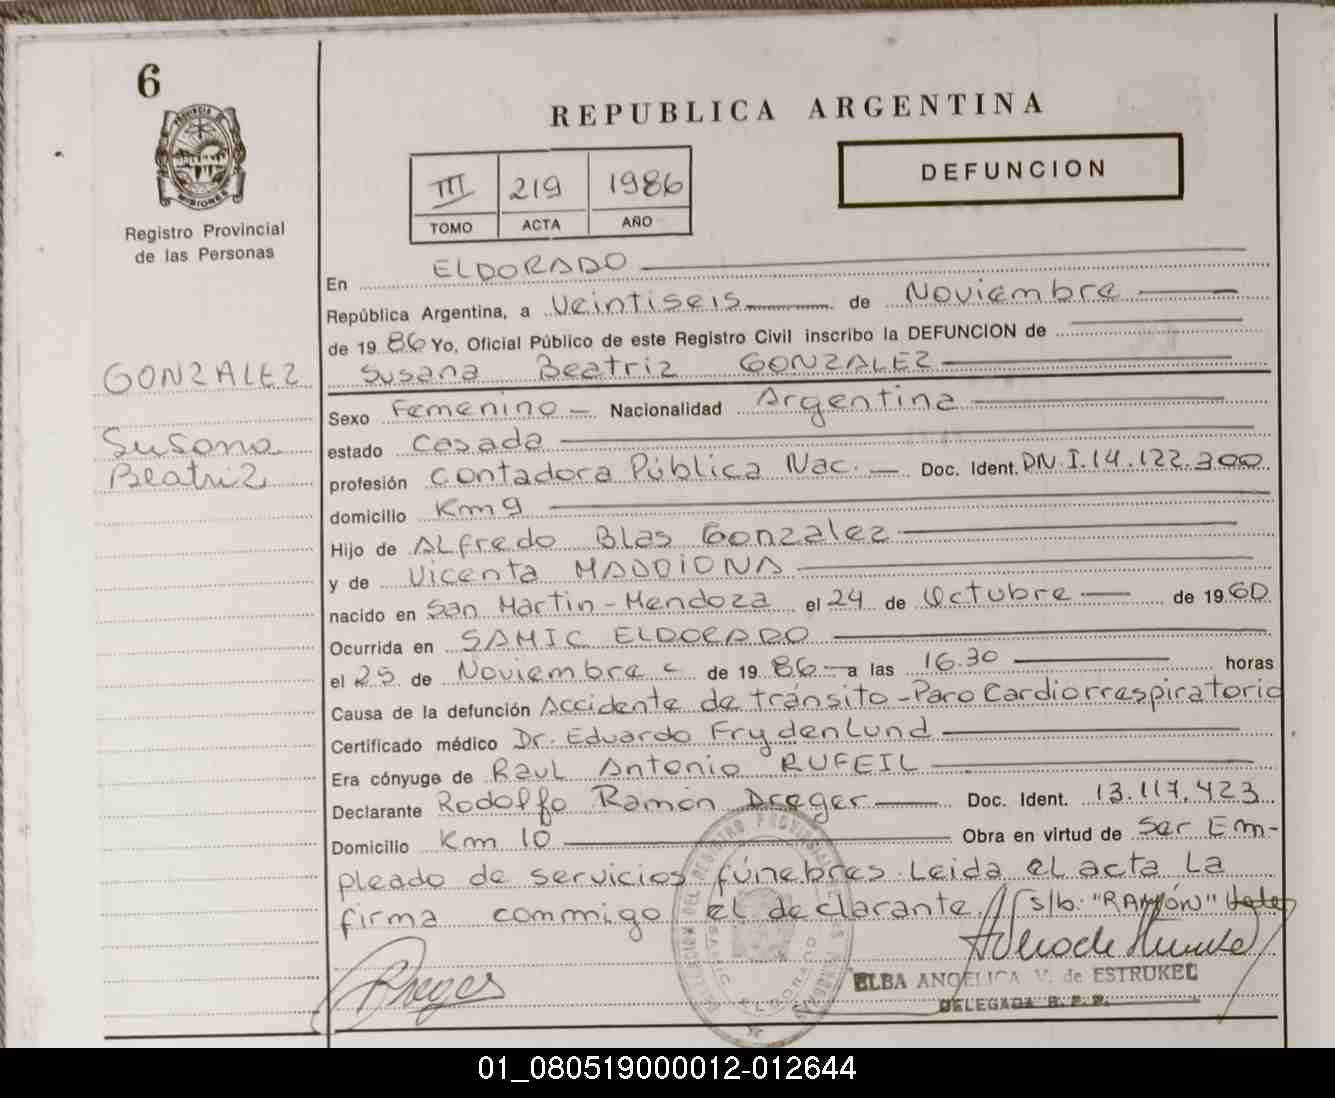 6
PROVINCIA DE
MISIONES
Registro Provincial
de las Personas
GONZALEZ
Susana
Beatriz
REPUBLICA ARGENTINA
III 219 1986
TOMO ACTA AÑO
DEFUNCION
En ELDORADO
República Argentina, a Veintiseis de Noviembre
de 1986 Yo, Oficial Público de este Registro Civil inscribo la DEFUNCION de
Susana Beatriz GONZALEZ
Sexo Femenino Nacionalidad Argentina
estado Casada
profesión Contadora Pública Nac. Doc. Ident. DN.I.14.122.300
domicilio Km 9
Hijo de Alfredo Blas Gonzalez
y de Vicenta MADDIONA
nacido en San Martin - Mendoza el 24 de Octubre de 1960
Ocurrida en SAMIC ELDORADO
el 25 de Noviembre de 1986 a las 16.30 horas
Causa de la defunción Accidente de tránsito - Paro Cardiorrespiratorio
Certificado médico Dr. Eduardo Frydenlund
Era cónyuge de Raul Antonio RUFEIL
Declarante Rodolfo Ramón Dreger Doc. Ident. 13.117.423
Domicilio Km 10 Obra en virtud de Ser Em-
pleado de servicios fúnebres. Leida el acta La
firma commigo el declarante. s/b. "RAMÓN"
Dreger
ELBA ANGELICA V. de ESTRUKEL
DELEGADA R.P.P.
01_080519000012-012644